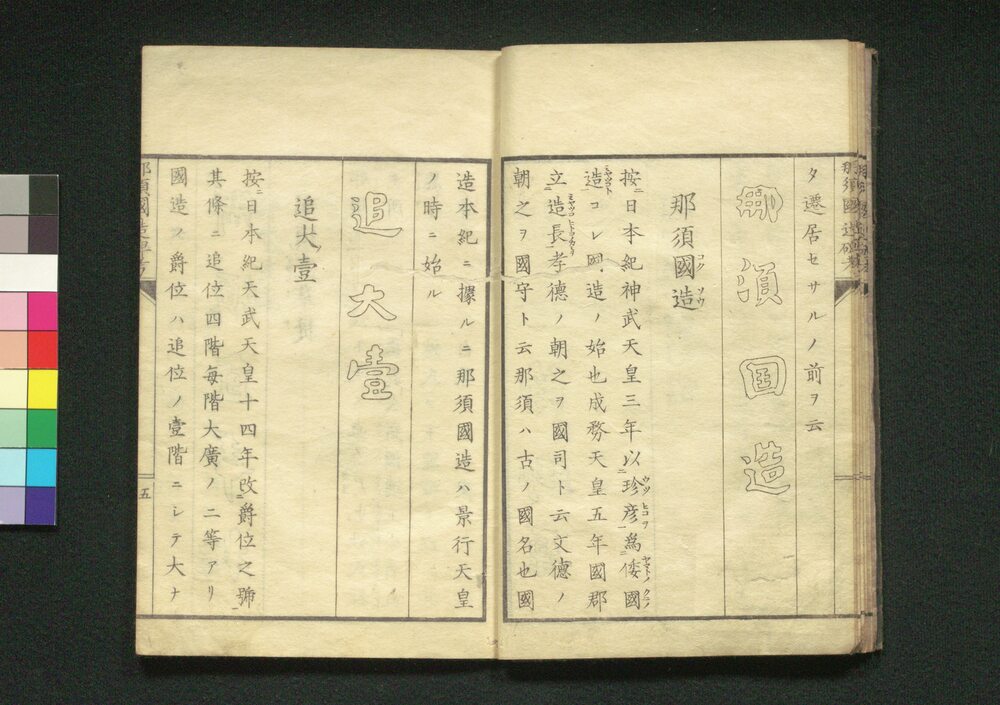 タ遷居セサルノ前ヲ云
那須国造
那須國造
按ニ日本紀神武天皇三年以珍彦爲倭國
造コレ國造ノ始也成務天皇五年國郡
立造長孝德ノ朝之ヲ國司ト云文德ノ
朝之ヲ國守ト云那須ハ古ノ國名也國
造本紀ニ據ルニ那須國造ハ景行天皇
ノ時ニ始ル
追大壹
追大壹
按ニ日本紀天武天皇十四年改爵位之號
其條ニ追位四階每階大廣ノ二等アリ
國造ノ爵位ハ追位ノ壹階ニシテ大ナ
五